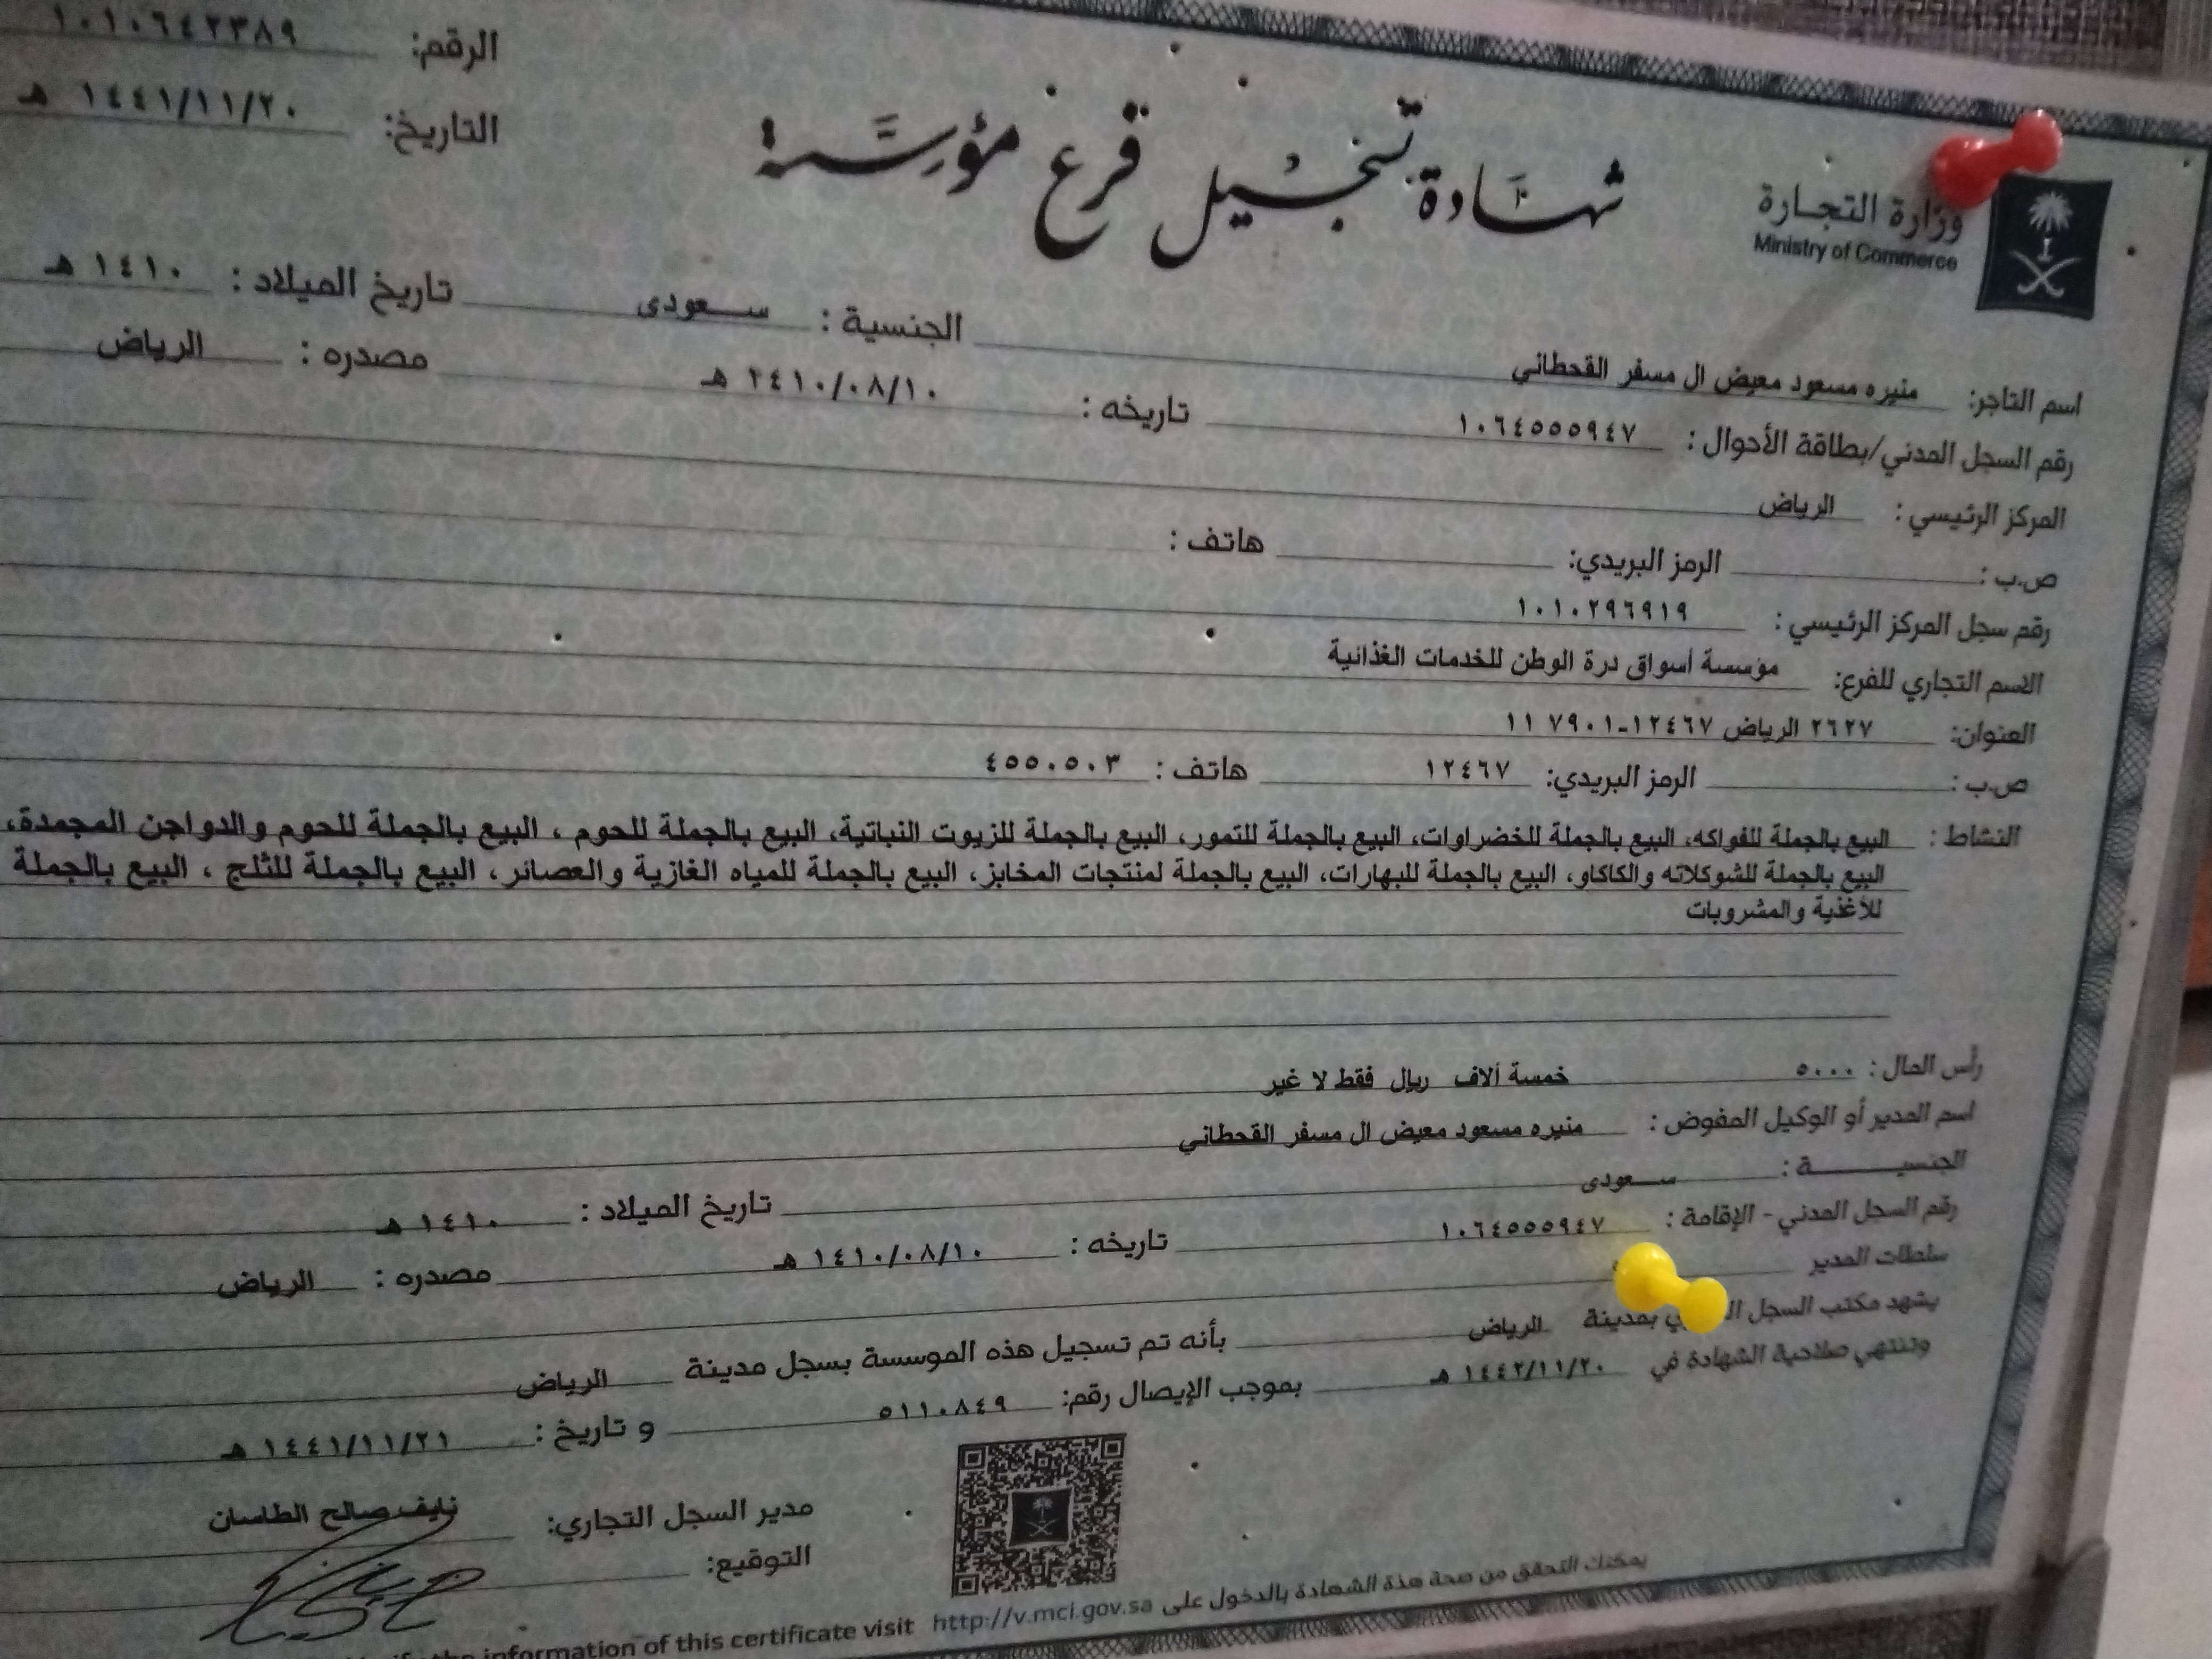 وزارة التجارة
Ministry of Commerce
شهادة تسجيل فرع مؤسسة
الرقم: ١٠١٠٦٤٢٣٨٩
التاريخ: ١٤٤١/١١/٢٠ هـ
اسم التاجر: منيره مسعود معيض ال مسفر القحطاني الجنسية : سعودى تاريخ الميلاد : ١٤١٠ هـ
رقم السجل المدني/بطاقة الأحوال : ١٠٦٤٥٥٥٩٤٧ تاريخه : ١٤١٠/٠٨/١٠ هـ مصدره : الرياض
المركز الرئيسي : الرياض
ص.ب : الرمز البريدي: هاتف :
رقم سجل المركز الرئيسي : ١٠١٠٢٩٦٩١٩
الاسم التجاري للفرع: مؤسسة أسواق درة الوطن للخدمات الغذائية
العنوان: ٢٦٢٧ الرياض ١٢٤٦٧-٧٩٠١ ١١
ص.ب : الرمز البريدي: ١٢٤٦٧ هاتف : ٤٥٥٠٥٠٣
النشاط : البيع بالجملة للفواكه، البيع بالجملة للخضراوات، البيع بالجملة للتمور، البيع بالجملة للزيوت النباتية، البيع بالجملة للحوم ، البيع بالجملة للحوم والدواجن المجمدة،
البيع بالجملة للشوكلاته والكاكاو، البيع بالجملة للبهارات، البيع بالجملة لمنتجات المخابز، البيع بالجملة للمياه الغازية والعصائر، البيع بالجملة للثلج ، البيع بالجملة
للأغذية والمشروبات
رأس المال : ٥٠٠٠ خمسة ألاف ريال فقط لا غير
اسم المدير أو الوكيل المفوض : منيره مسعود معيض ال مسفر القحطاني
الجنسية : سعودى تاريخ الميلاد : ١٤١٠ هـ
رقم السجل المدني - الإقامة : ١٠٦٤٥٥٥٩٤٧ تاريخه : ١٤١٠/٠٨/١٠ هـ مصدره : الرياض
سلطات المدير
يشهد مكتب السجل بمدينة الرياض بأنه تم تسجيل هذه الموسسة بسجل مدينة الرياض
وتنتهي صلاحية الشهادة في ١٤٤٢/١١/٢٠ هـ بموجب الإيصال رقم: ٥١١٠٨٤٩ و تاريخ : ١٤٤١/١١/٢١ هـ
مدير السجل التجاري: نايف صالح الطاسان
التوقيع:
يمكنك التحقق من صحة هذة الشهادة بالدخول على http://v.mci.gov.sa
the information of this certificate visit